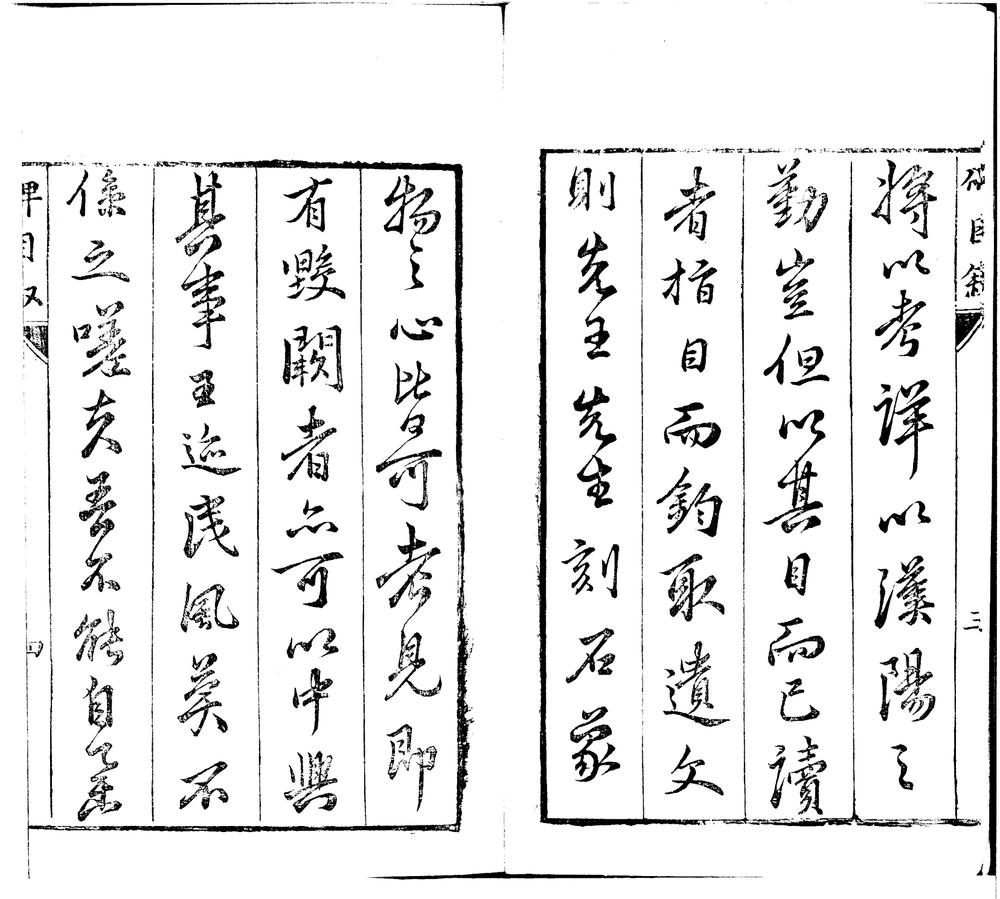 碑目錄
三
將以考詳以漢陽之
勤豈但以其目而已讀
者指目而鈎取遺文
則先王先生刻石蒙
物之心皆可考見即
有毀闕者亦可以中興
其事王迹民風莫不
像之嗟夫吾不能自
碑目叙
四